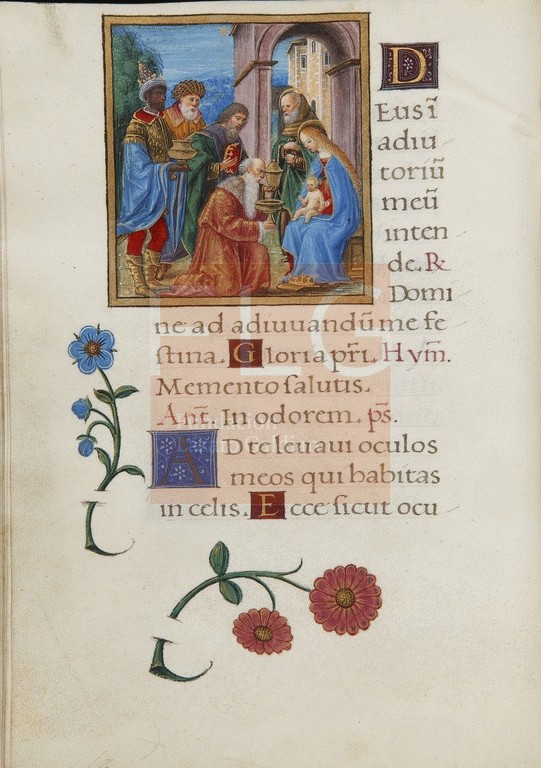 D
Eus ī
adiu
toriū
meū
inten
de. ℟
Domi
ne ad adiuuandū me fe
ſtina. Gloria pr̄i. Hym̄.
Memento ſalutis.
Añt. In odorem. ps̄.
AD te leuaui oculos
meos qui habitas
in celis. Ecce ſicut ocu
FLG